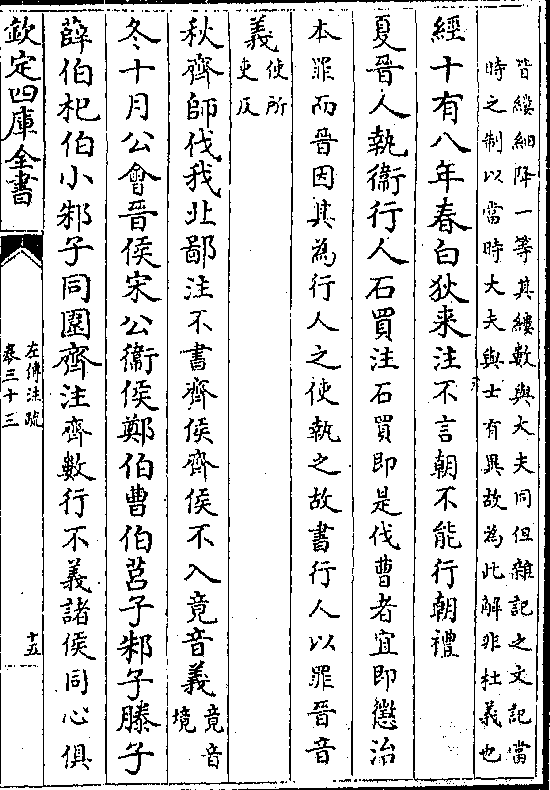 皆縷細降一等其縷數與大夫同但雜記之文記當
時之制以當時大夫與士有異故為此解非杜義也
經十有八年春白狄来注不言朝不能行朝禮
夏晉人執衞行人石買注石買即是伐曹者宜即懲治
本罪而晉因其為行人之使執之故書行人以罪晉音
義使所
吏反
秋齊師伐我北鄙注不書齊侯齊侯不入竟音義竟音
境
冬十月公會晉侯宋公衞侯鄭伯曹伯莒子邾子滕子
薛伯杞伯小邾子同圍齊注齊數行不義諸侯同心俱
欽定四庫全書
左傳注疏
卷三十三
十五